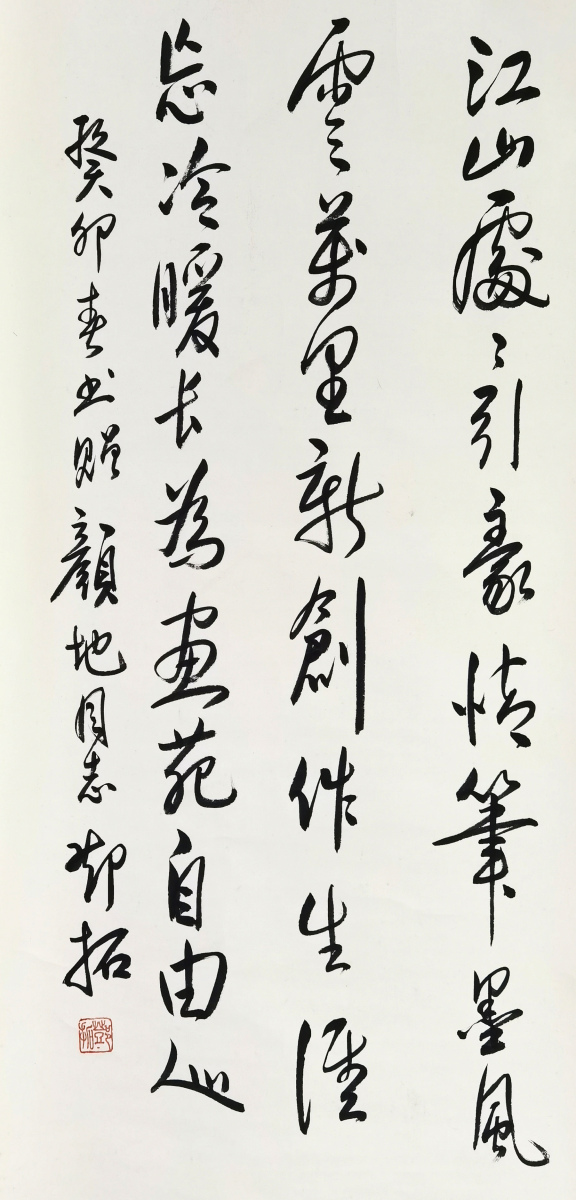 江山處〻引豪情筆墨風
雲萬里新創作生涯
忘冷暖长為畫苑自由
癸卯春书贈顏地同志鄧拓
鄧拓